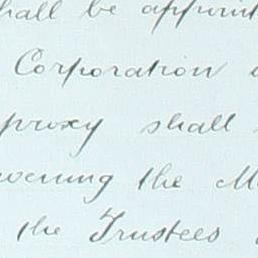 shall be appoint
Corporation
proxy shall
the
the Trustees